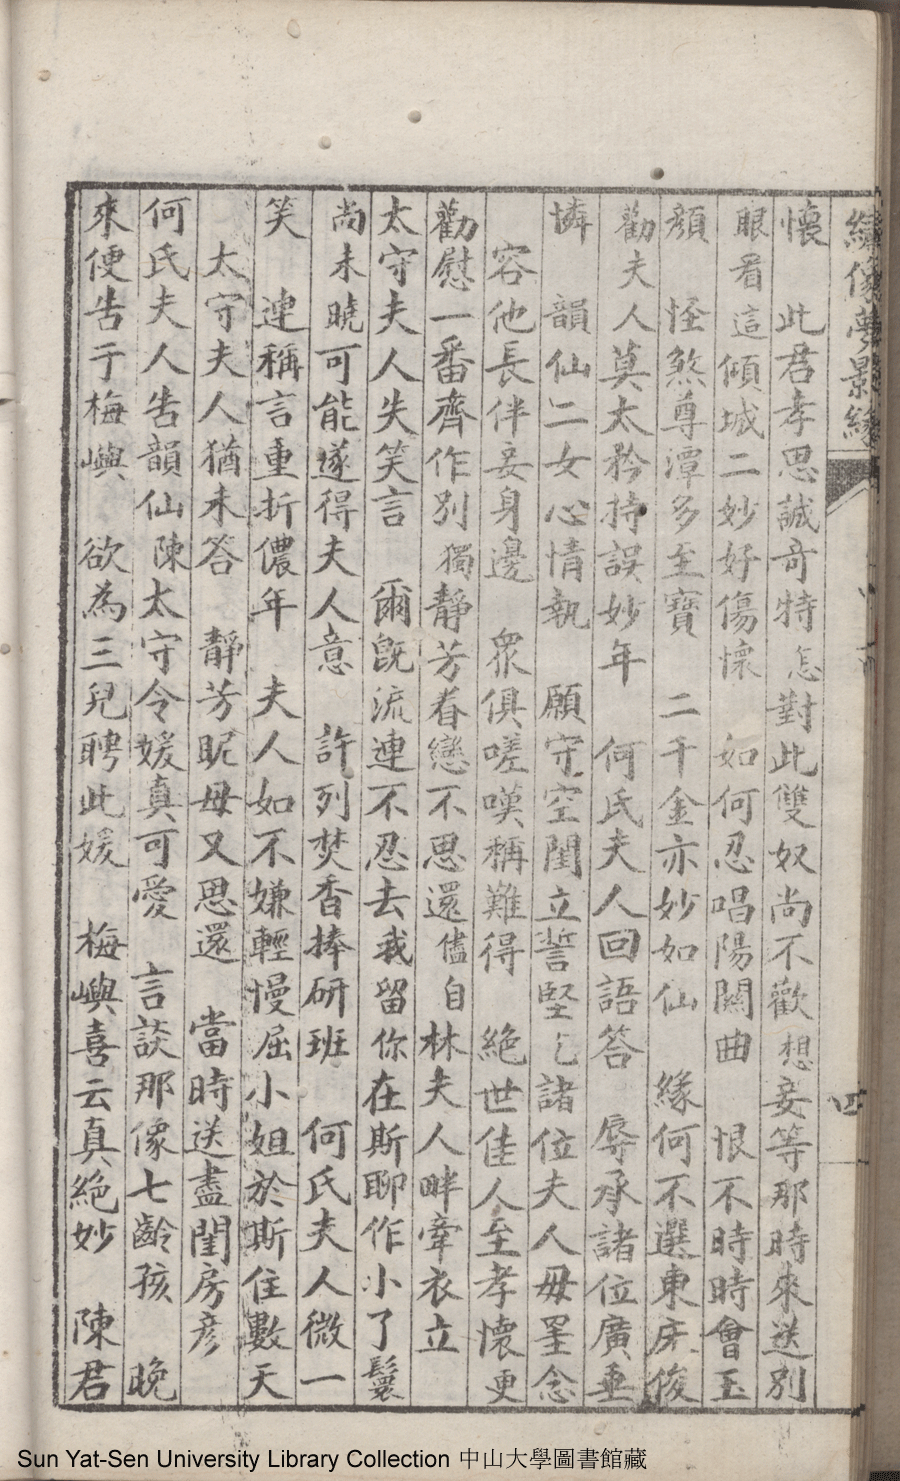 繡像夢影緣
四
懷　此君孝思誠奇特怎對此雙奴尚不歡想妾等那時來送別
眼看這傾城二妙好傷懷　如何忍唱陽關曲　恨不時時會玉
顏　怪煞尊潭多至寶　二千金亦妙如仙　緣何不選東床俊
勸夫人莫太矜持誤妙年　何氏夫人回語答　辱承諸位廣垂
憐　韻仙二女心情執　願守空閨立誓堅乞諸位夫人毋罣念
容他長伴妾身邊　眾俱嗟嘆稱難得　絕世佳人至孝懷更
勸慰一番齊作別獨靜芳眷戀不思還儘自林夫人畔牽衣立
太守夫人失笑言　爾既流連不忍去我留你在斯聊作小了鬟
尚未曉可能遂得夫人意　許列焚香捧硏班　何氏夫人微一
笑　連稱言重折儂年　夫人如不嫌輕慢屈小姐於斯住數天
太守夫人猶未答　靜芳昵母又思還　當時送盡閨房彥
何氏夫人告韻仙陳太守令媛真可愛　言談那像七齡孩　晚
來便告于梅嶼　欲為三兒聘此媛　梅嶼喜云真絕妙　陳君
Sun Yat-Sen University Library Collection 中山大學圖書館藏